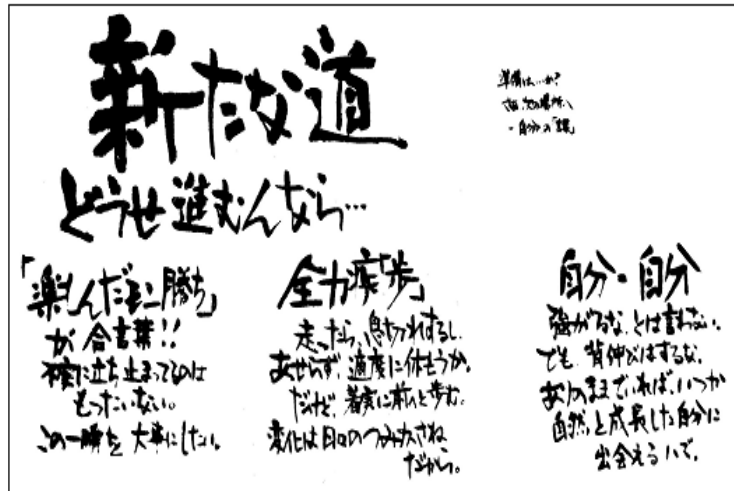 新たな道
どうせ進むんなら…
準備は…か?
「楽しんだモン勝ち」
が合言葉!!
に立ち止まってるのは
もったいない。
この一瞬を大事にしたい。
全力疾「歩」
走ったら、息切れするし
あせらず、適度に休もうか。
だけど、着実に前へと歩む。
変化は日々のつみかさね
だから。
自分・自分
強がるな、とは言わない。
でも、背伸びはするな。
ありのままでいれば、いつか
自然と成長した自分に
出会えるハズ。